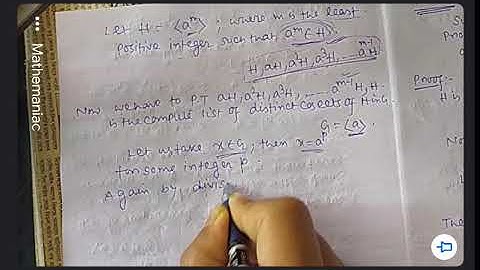 Let H = <aᵐ>; where m is the least
positive integer such that aᵐ∈H
H, aH, a²H, a³H, ... aᵐ⁻¹H
Now we have to P.T aH, a²H, a³H, .... aᵐ⁻¹H, H.
is the complete list of distinct cosets of H in G.
G = <a>
Let us take x∈G, then x = aᵖ
for some integer p.
Again by divis
Proof:-
H is
The
Mathemaniac